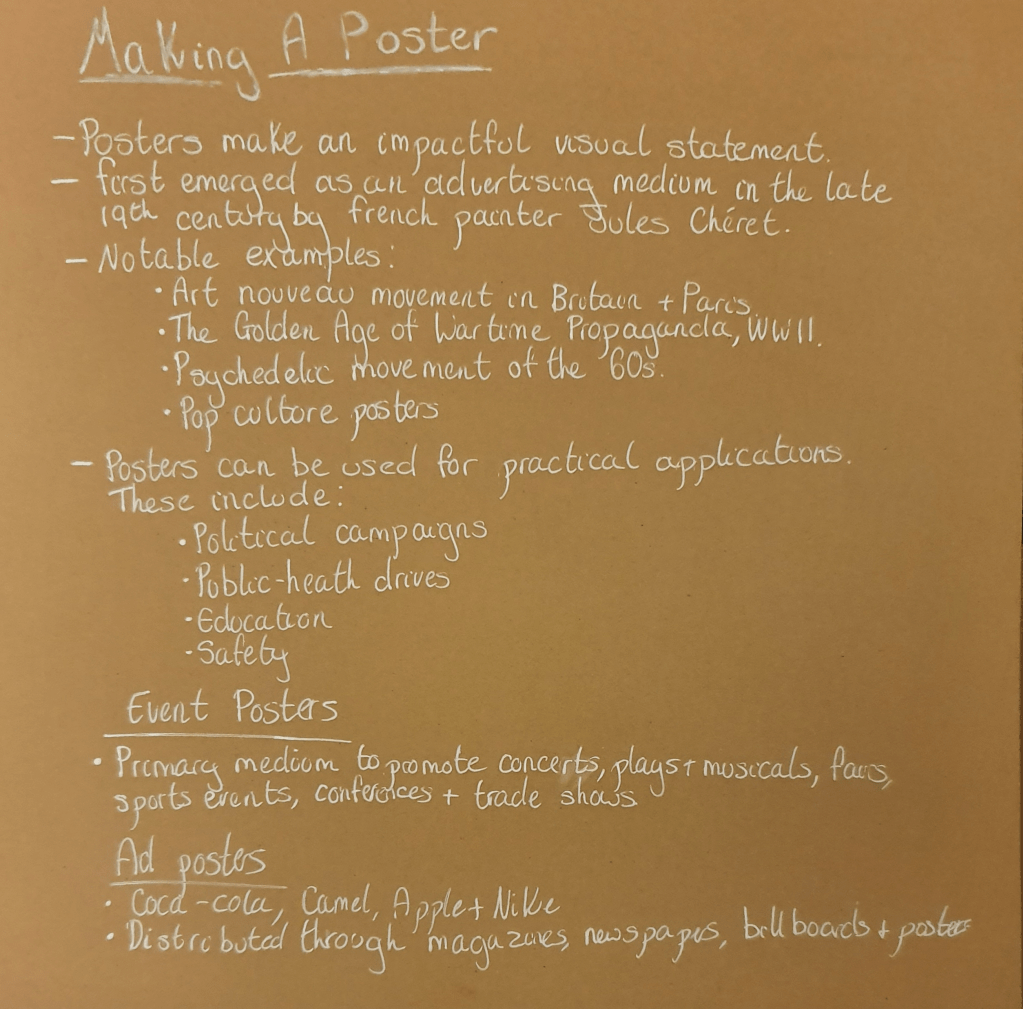 Making A Poster
- Posters make an impactful visual statement.
- first emerged as an advertising medium in the late
19th century by french painter Jules Chéret.
- Notable examples:
• Art nouveau movement in Britain + Paris.
• The Golden Age of Wartime Propaganda, WWII.
• Psychedelic movement of the '60s.
• Pop culture posters
- Posters can be used for practical applications.
These include:
• Political campaigns
• Public-heath drives
• Education
• Safety
Event Posters
• Primary medium to promote concerts, plays + musicals, fairs,
sports events, conferences + trade shows
Ad posters
• Coca-cola, Camel, Apple + Nike
• Distributed through magazines, newspapers, billboards + posters